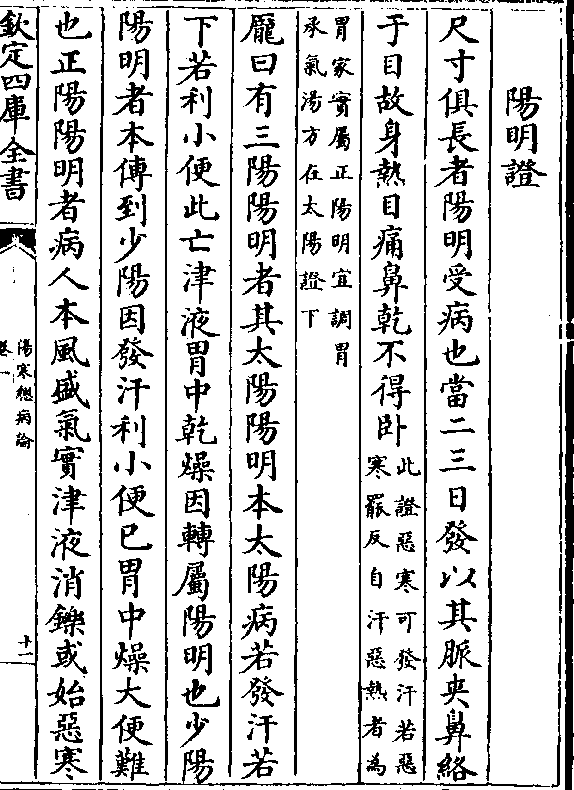 陽明證
尺寸俱長者陽明受病也當二三日發以其脈夾鼻絡
于目故身熱目痛鼻乾不得卧此證惡寒可發汗若惡
寒罷反自汗惡熱者為
胃家實屬正陽明宜調胃
承氣湯方在太陽證下
龐曰有三陽陽明者其太陽陽明本太陽病若發汗若
下若利小便此亡津液胃中乾燥因轉屬陽明也少陽
陽明者本傳到少陽因發汗利小便已胃中燥大便難
也正陽陽明者病人本風盛氣實津液消鑠或始惡寒
欽定四庫全書
傷寒總病論
卷一
十一